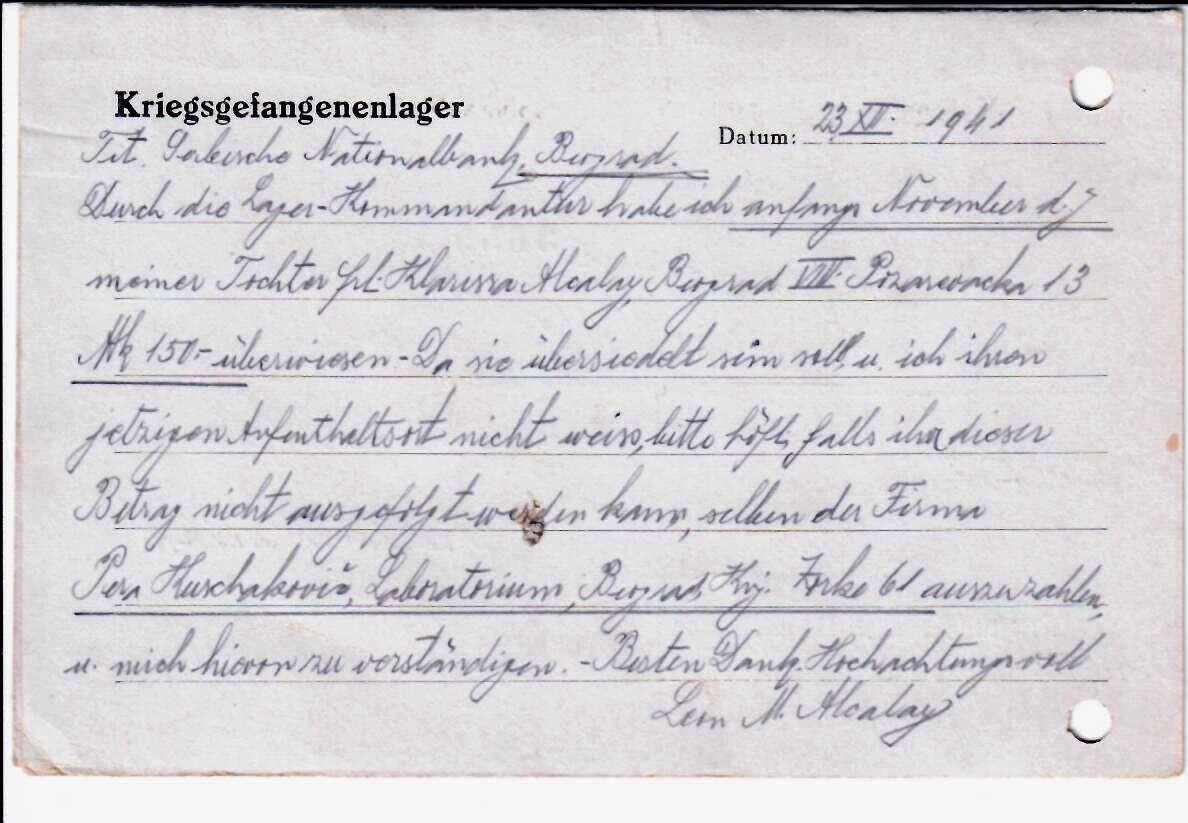 Kriegsgefangenenlager
Datum: 23 XII. 1941
Tit. Serbische Nationalbank, Beograd.
Durch die Lager-Kommandantur habe ich anfangs November d. J
meiner Tochter frl. Klarissa Alcalay, Beograd VIII. Pozarevacka 13
Mk 150.- überwiesen - Da sie übersiedelt sein soll u. ich ihren
jetzigen Aufenthaltsort nicht weiss, bitte höfl, falls ihr dieser
Betrag nicht ausgefolgt werden kann, selben der Firma
Pera Kuschaković, Laboratorium, Beograd, Knj. Zorke 61 auszuzahlen,
u. mich hievon zu verständigen. - Besten Dank, Hochachtungsvoll
Leon M. Alcalay